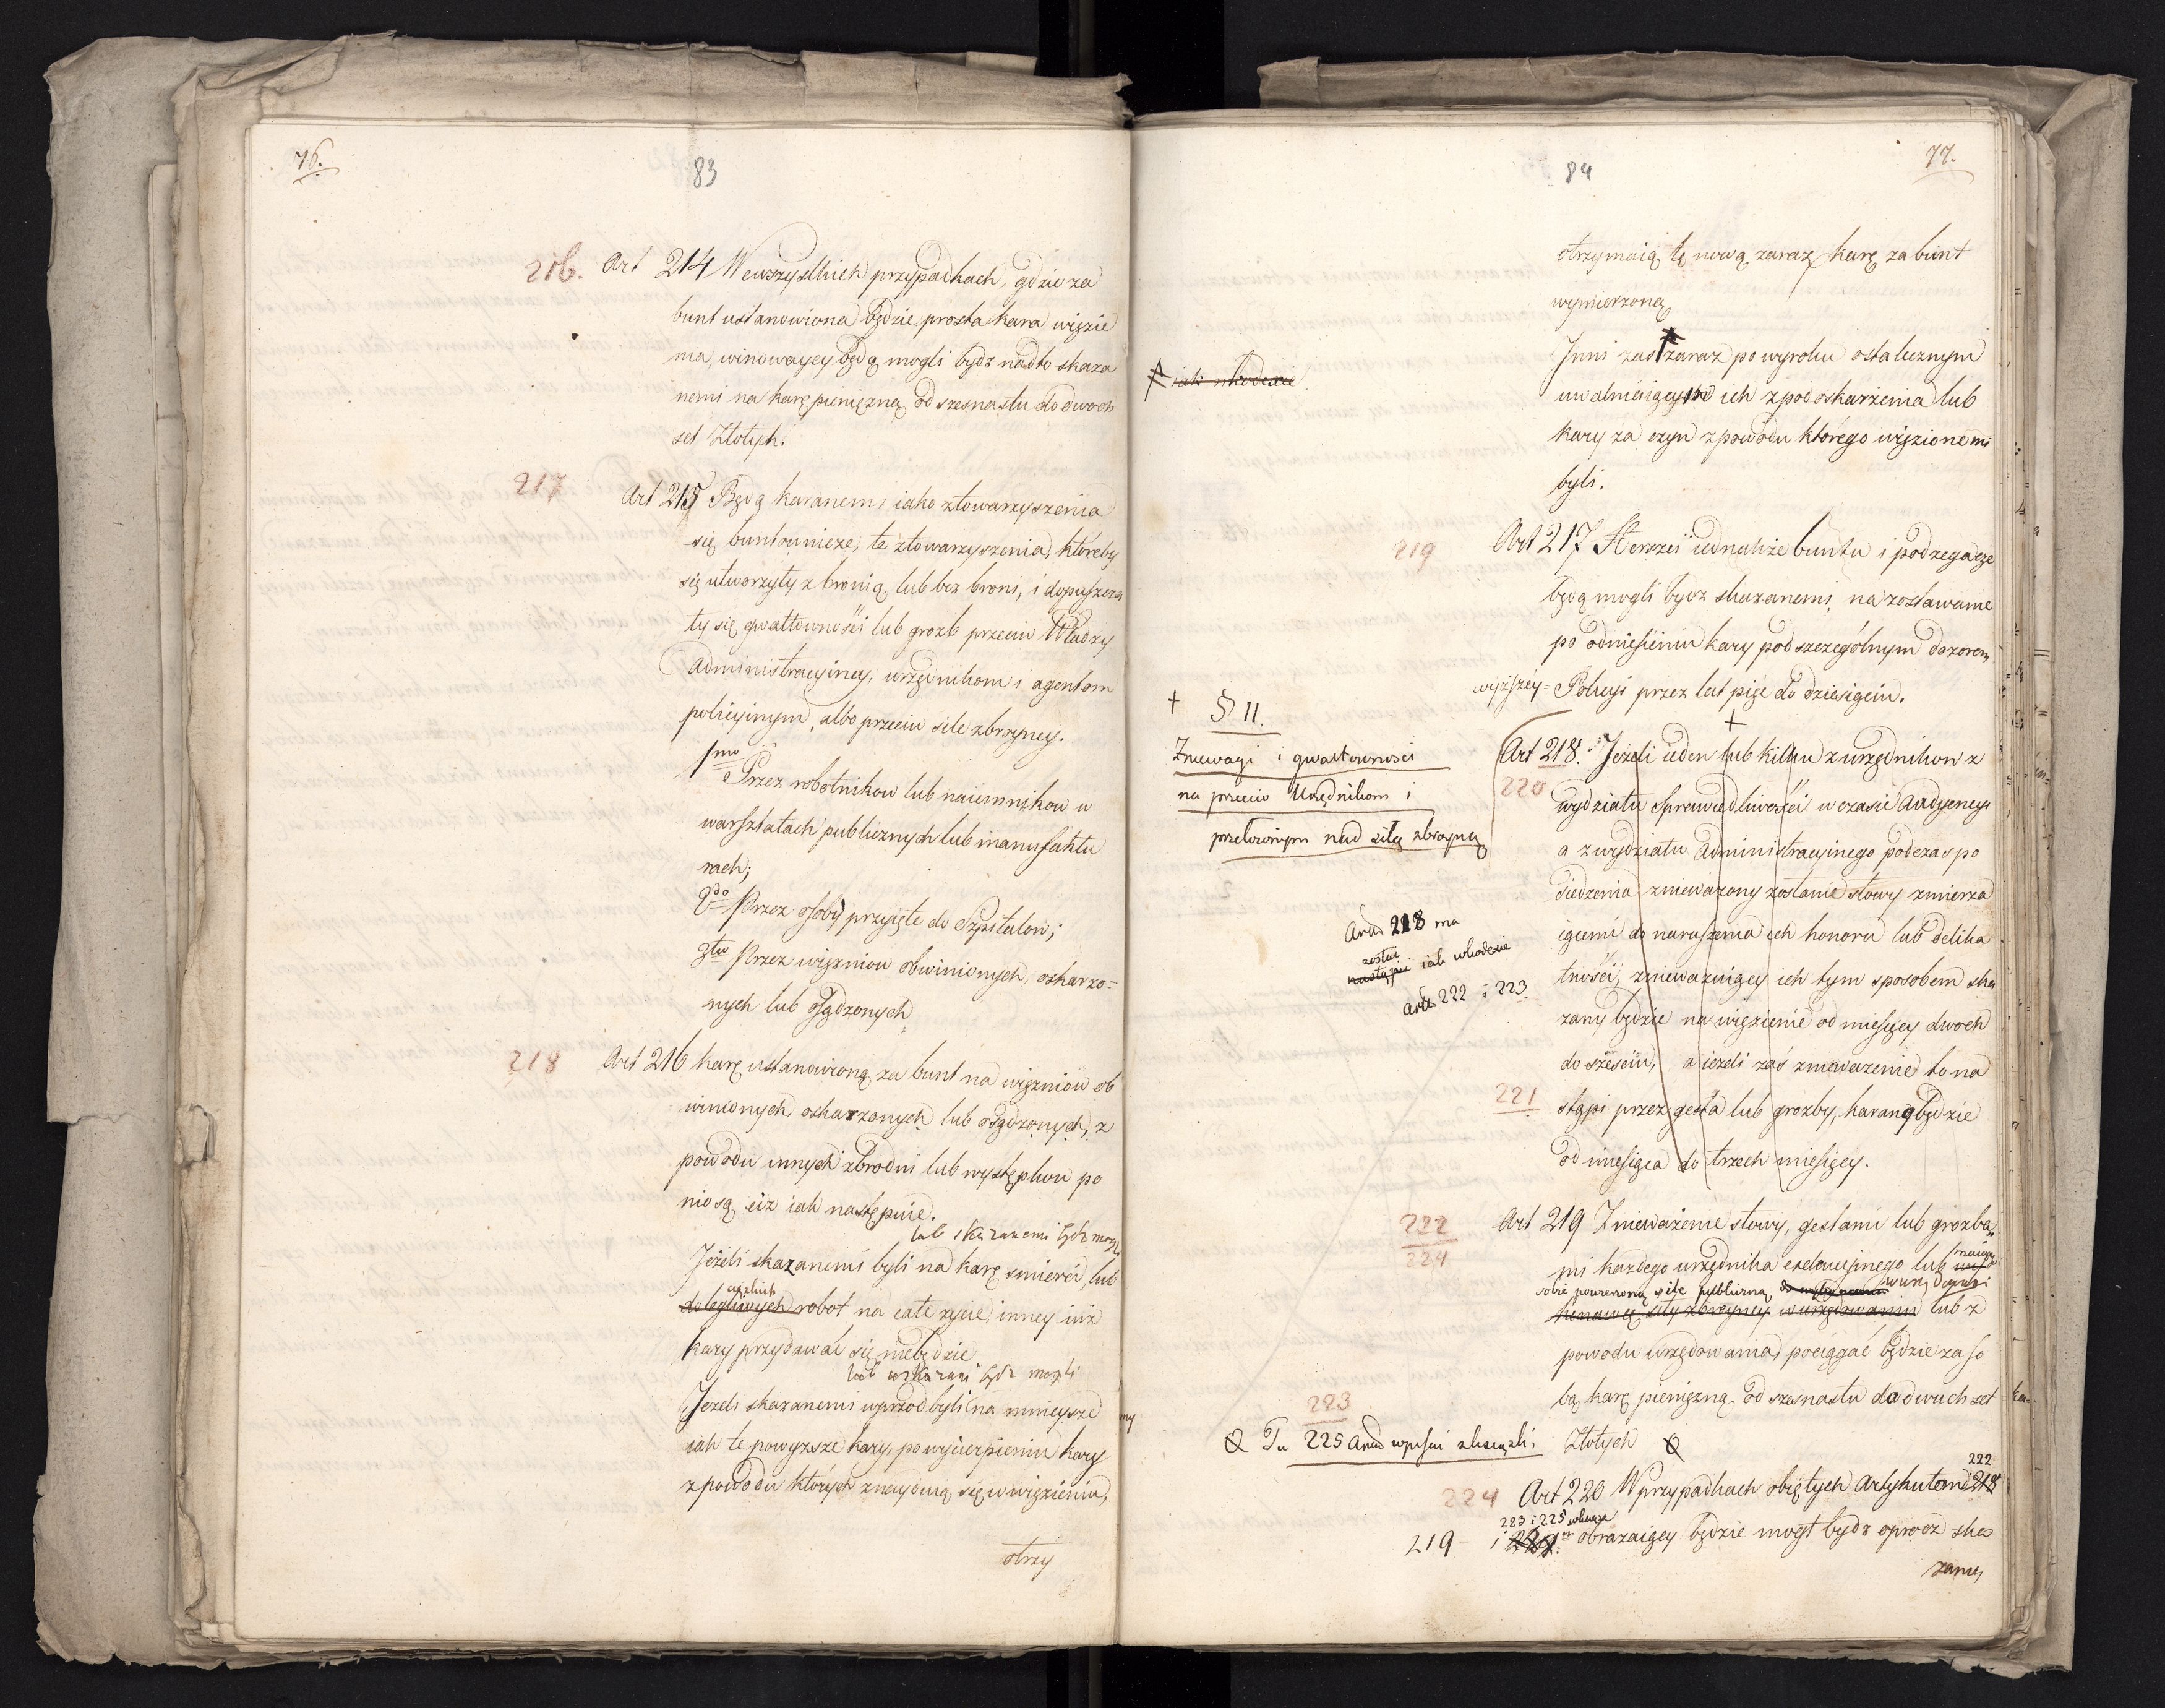 76.
83
216. Art 214 We wszystkich przypadkach, gdzie za
bunt ustanowiona będzie prosta kara więzie
nia, winowaycy będą mogli bydź nadto skaza
nemi na karę pieniężną od szesnastu do dwoch
set Złotych.
217 Art 215 Będą karanemi iako ztowarzyszenia
się buntownicze, te ztowarzyszenia, któreby
się utworzyły z bronią lub bez broni, i dopuszcza
ły się gwałtowności lub grozb przeciw Władzy
Administracyiney, urzędnikom i agentom
policyinym, albo przeciw sile zbroyney.
1mo Przez robotnikow lub naiemnikow w
warsztatach publicznych lub manufaktu
rach;
2do Przez osoby przyięte do Szpitalow;
3tio Przez więzniow obwinionych, oskarzo=
nych lub osądzonych
218 Art 216 karę ustanowioną za bunt na więzniow ob
winionych oskarzonych lub osądzonych, z
powodu innych zbrodni lub występkow po
niosą ciż iak następuie.
lub skazanemi bydź mogli
Jeżeli skazanemi byli na karę smierci, lub
ciężkich
dolegliwych robot na całe życie, inney iuż
kary przydawać się niebędzie
lub wskazani bydź mogli
Jezeli skazanemi wprzod byli na mnieysze
iak te powyższe kary, po wycierpieniu kary
z powodu których znayduią się w więzieniu,
otrzy
77.
84
otrzymaią tę nową zaraz karę za bunt
wymierzoną
Inni zaś zaraz po wyroku ostatecznym
uwalniaiącym ich zpod oskarżenia lub
kary za czyn z powodu którego więzionemi
byli.
219 Art 217 Herszci iednakże buntu i podzegacze
będą mogli bydz skazanemi na zostawanie
po odniesieniu kary pod szczególnym dozorem
wyższey= Policyi przez lat pięć do dziesięciu.
+ § II.
Zniewagi i gwałtownosci
na przeciw Urzędnikom i
przełożonym nad siłą zbroyną
+
Art 218. Jeżeli ieden lub kilku z urzędnikow z
220 wydziału Sprawiedliwości w czasie Audyencyi
a z wydziału Administracyinego podczas po
siedzenia zniewazony zostanie słowy zmierza
iącemi do naruszenia ich honoru lub delika
tności, zniewazaiący ich tym sposobem ska
zany będzie na więzienie od miesięcy dwoch
do sześciu, a ieżeli zaś zniewazenie to na
221 stąpi przez gesta lub grozby, karany będzie
od miesiąca do trzech miesięcy.
218 ma
zostać
nastąpić iak wkodexie
222 i 223
222
224
Art 219 Znieważenie słowy, gestami lub grozba
mi kazdego urzędnika exekucyinego lub
sobie powierzoną siłę publiczną
siły zbroyney w urzędowaniu lub z
powodu urzędowania, pociągać będzie za so
bą karę pieniężną od szesnastu do dwuch set
Złotych
223
Tu 225
224 Art 220 W przypadkach obiętych Artykułami 218
222
223 i 225
219 - i obrazaiący będzie mogł bydz oprocz ska
zania,